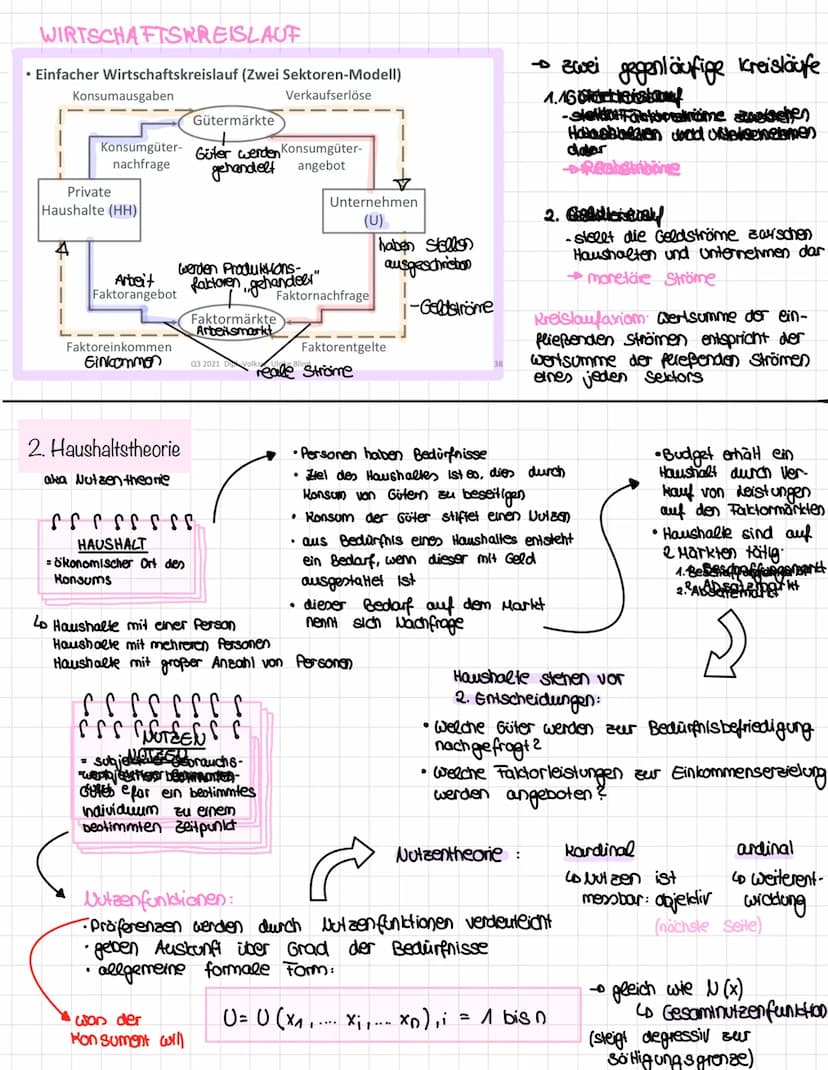 WIRTSCHAFTSKREISLAUF
• Einfacher Wirtschaftskreislauf (Zwei Sektoren-Modell)
Konsumausgaben
Verkaufserlöse
Gütermärkte
Konsumgüter-
nachfrage
Güter werden
gehandelt
Konsumgüter-
angebot
Private
Haushalte (HH)
Unternehmen
(U)
haben Stellen
ausgeschrieben
Arbeit
Faktorangebot
werden Produktions-
faktoren „gehandelt"
Faktornachfrage
Faktormärkte
Arbeitsmarkt
-Geldströme
Faktoreinkommen
Einkommen
Faktorentgelte
Q3 2021
38
reale Ströme
→ zwei gegenläufige Kreisläufe
1.
Haushalten und Unternehmen
dar
2.
- stellt die Geldströme zwischen
Haushalten und Unternehmen dar
→ monetäre Ströme
Kreislaufaxiom: Wertsumme der ein-
fließenden Strömen entspricht der
Wertsumme der fließenden Strömen
eines jeden Sektors
2. Haushaltstheorie
aka Nutzentheorie
HAUSHALT
= ökonomischer Ort des
Konsums
↳ Haushalte mit einer Person
Haushalte mit mehreren Personen
Haushalte mit großer Anzahl von Personen
• Personen haben Bedürfnisse
• Ziel des Haushaltes ist es, dies durch
Konsum von Gütern zu beseitigen
• Konsum der Güter stiftet einen Nutzen
• aus Bedürfnis eines Haushaltes entsteht
ein Bedarf, wenn dieser mit Geld
ausgestattet ist
• dieser Bedarf auf dem Markt
nennt sich Nachfrage
• Budget erhält ein
Haushalt durch Ver-
kauf von Leistungen
auf den Faktormärkten
• Haushalte sind auf
2 Märkten tätig:
1. Beschaffungsmarkt
2. Absatzmarkt
Haushalte stehen vor
2. Entscheidungen:
• Welche Güter werden zur Bedürfnisbefriedigung
nachgefragt?
• Welche Faktorleistungen zur Einkommenserzielung
werden angeboten?
NUTZEN
NUTZEN
Gutes für ein bestimmtes
Individuum zu einem
bestimmten Zeitpunkt
Nutzentheorie :
kardinal
↳ Nutzen ist
messbar: objektiv
ordinal
↳ Weiterent-
wicklung
(nächste Seite)
Nutzenfunktionen:
• Präferenzen werden durch Nutzenfunktionen verdeutlicht
• geben Auskunft über Grad der Bedürfnisse
• allgemeine formale Form:
was der
Konsument will
U= U (x₁, .... xᵢ, ... xₙ), i = 1 bis n
→ gleich wie N(x)
↳ Gesamtnutzenfunktion
(steigt degressiv zur
Sättigungsgrenze)